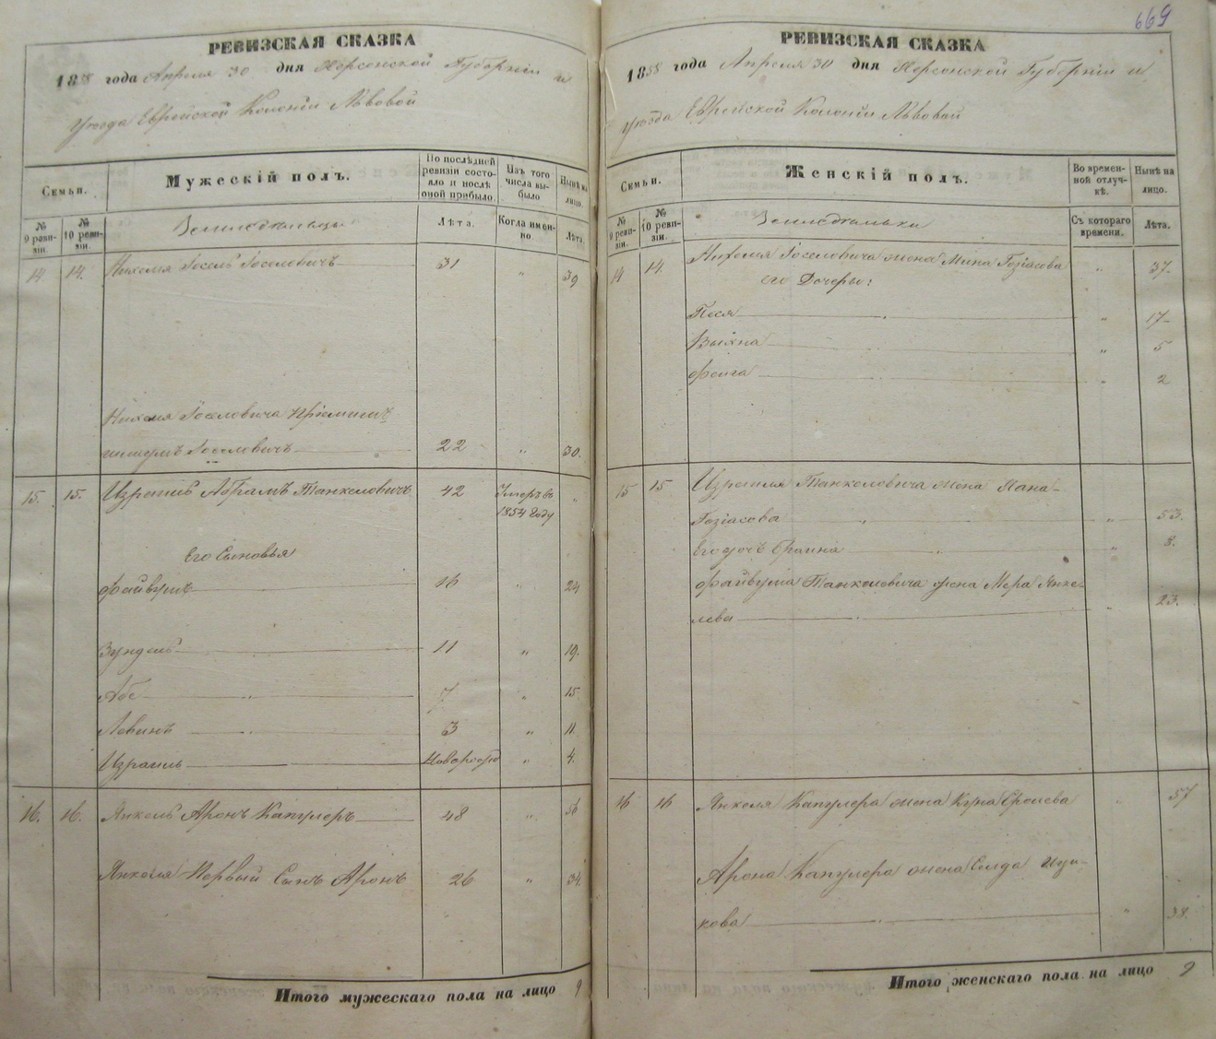 РЕВИЗСКАЯ СКАЗКА
1858 года Апреля 30 дня Херсонской Губерніи и
Уезда Еврейской Колоніи Львовой
Семьи.
Мужескій полъ.
По послѣдней ревизіи состояло и послѣ оной прибыло.
Изъ того числа выбыло
Нынѣ на лицо.
№ 9 ревизіи.
№ 10 ревизіи.
Земледельцы
Лѣта.
Когда именно.
Лѣта.
14. 14. Іосель Іоселовичъ 31 " 39
Іоселовича
Іоселовичъ 22 " 30.
15. 15. Израиль Абрамъ Танхелович 42 Умеръ въ 1854 году "
Его Сыновья
Файвушъ 16 " 24
Зундель 11 " 19.
Абе 7 " 15
Левинъ 3 " 11.
Израиль Новорож " 4.
16. 16. Янкель Аронъ Капулеръ 48 " 56
Янкеля Первый Сынъ Аронъ 26 " 34.
Итого мужескаго пола на лицо 9
669
РЕВИЗСКАЯ СКАЗКА
1858 года Апреля 30 дня Херсонской Губерніи и
Уезда Еврейской Колоніи Львовой
Семьи.
Женскій полъ.
Во временной отлучкѣ.
Нынѣ на лицо.
№ 9 ревизіи.
№ 10 ревизіи.
Земледельки
Съ котораго времени.
Лѣта.
14 14. Іоселовича жена Мина Гозіасова " 37.
его Дочеры:
Песя " 17
5
Фейга " 2
15 15 Израиля Танхеловича жена Хана
Гозіасова " 53.
Его дочь Фрайна " 8.
Файвуша Танхеловича жена Мера Янке-
лева " 23.
16 16 Янкеля Капулера жена " 57
Арона Капулера жена Селда Ици-
кова " 38.
Итого женскаго пола на лицо 9